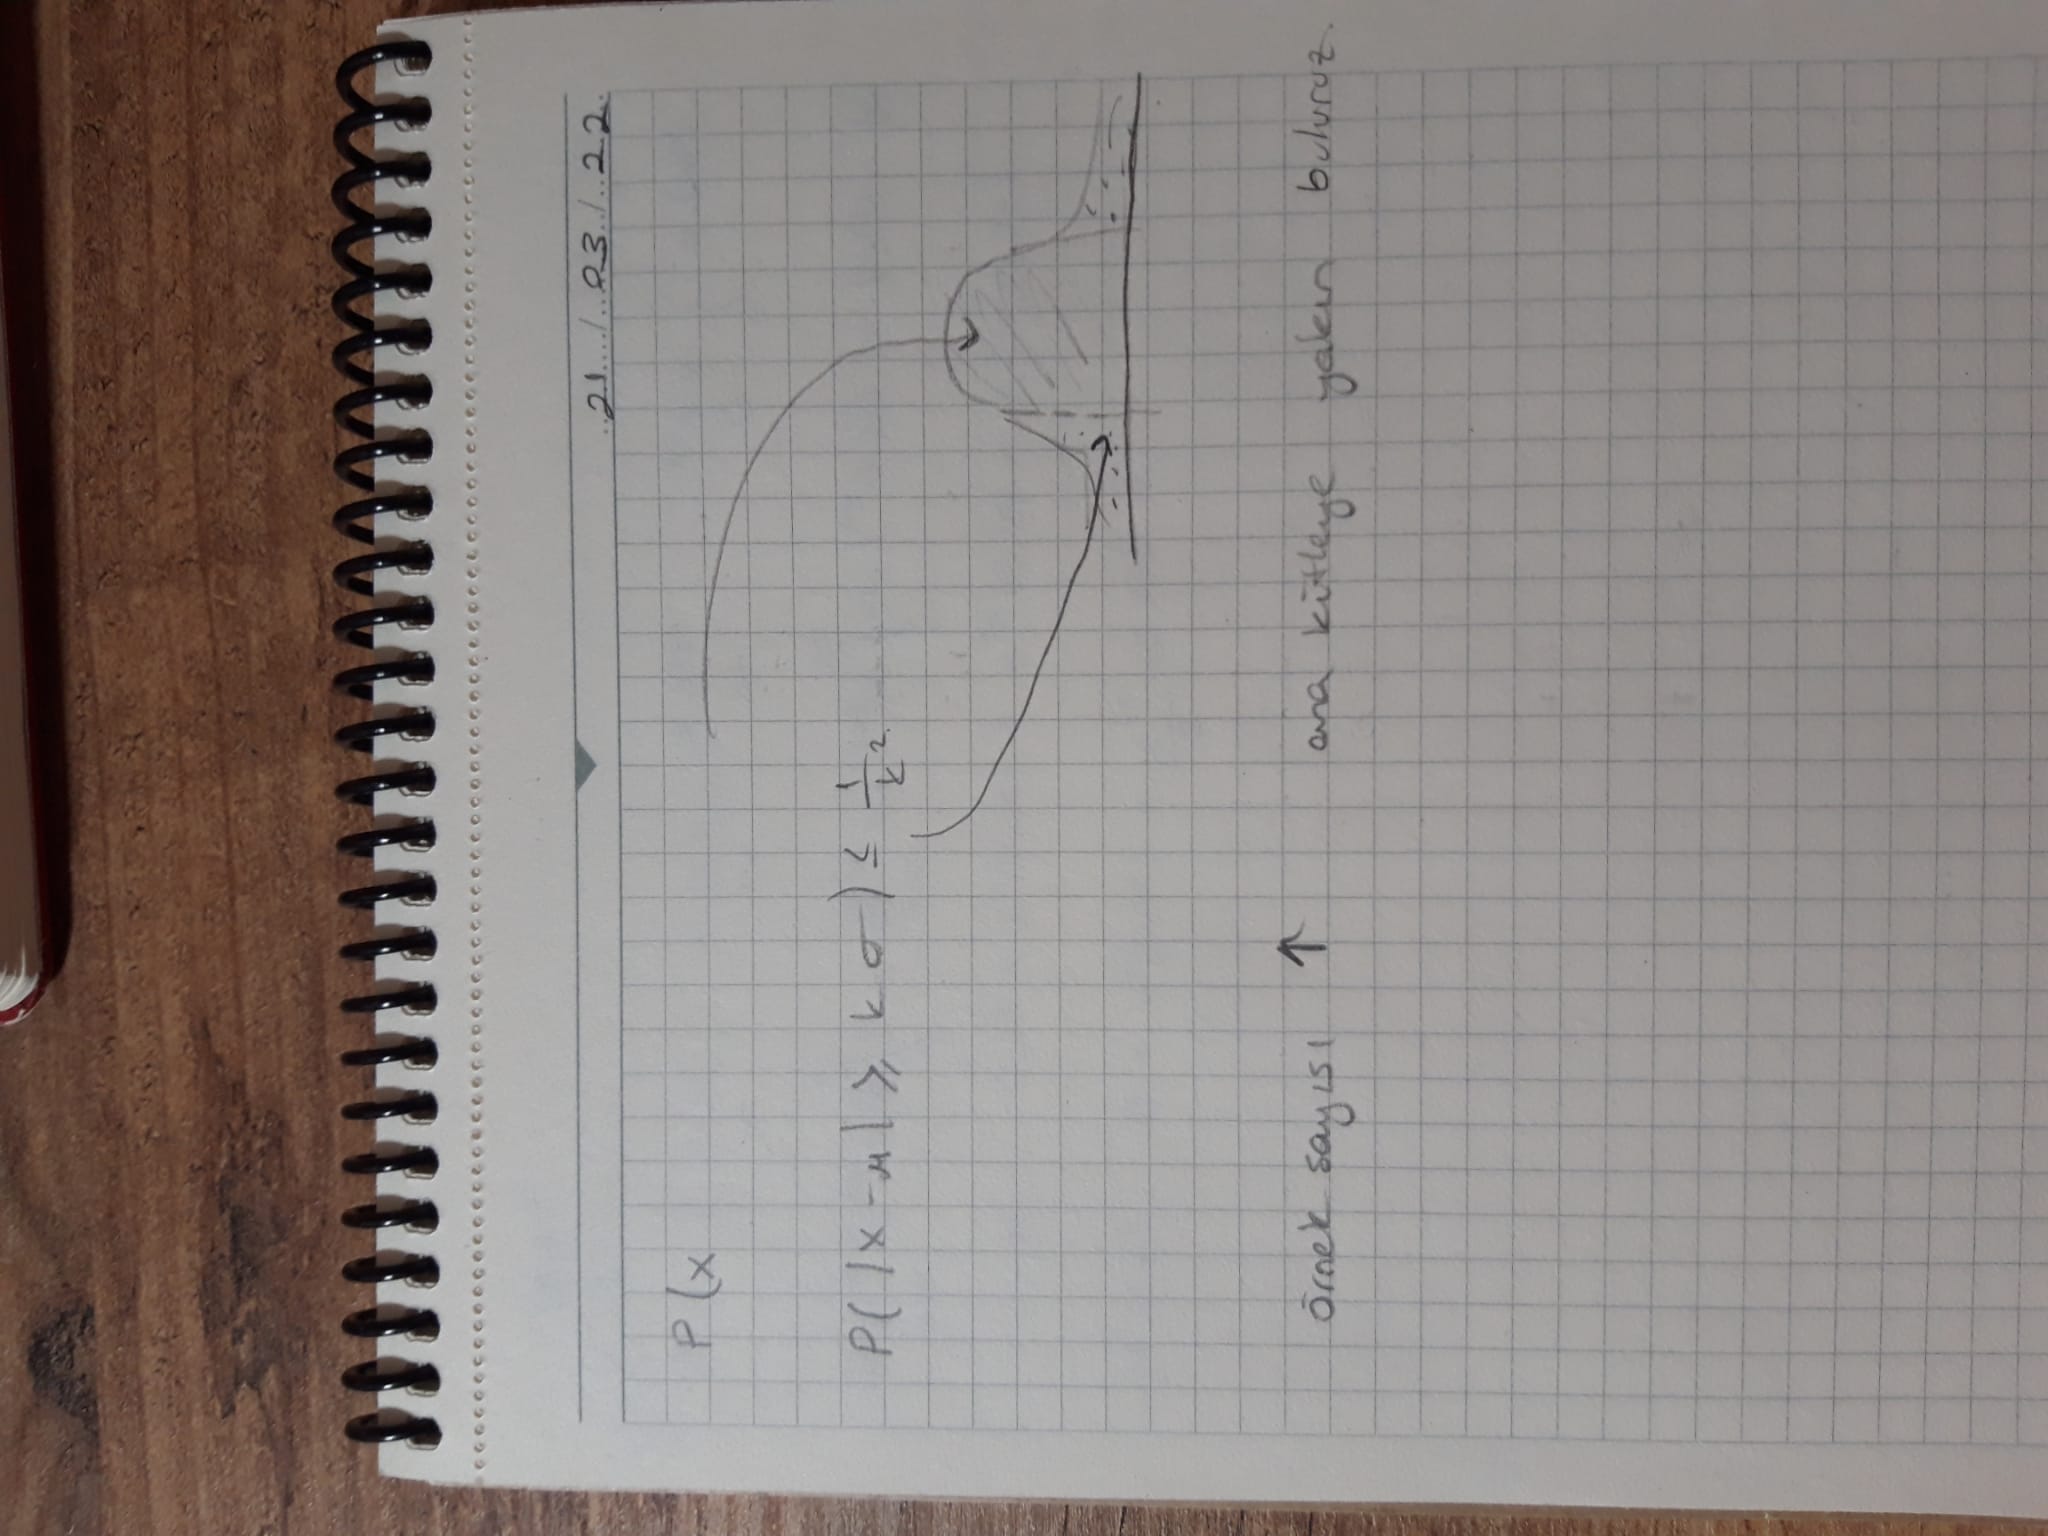 21 / 03 / 22
P(x
P(|x-μ| ≥ kσ) ≤ 1/k²
Örnek sayısı ↑ ana kütleye yakın buluruz.